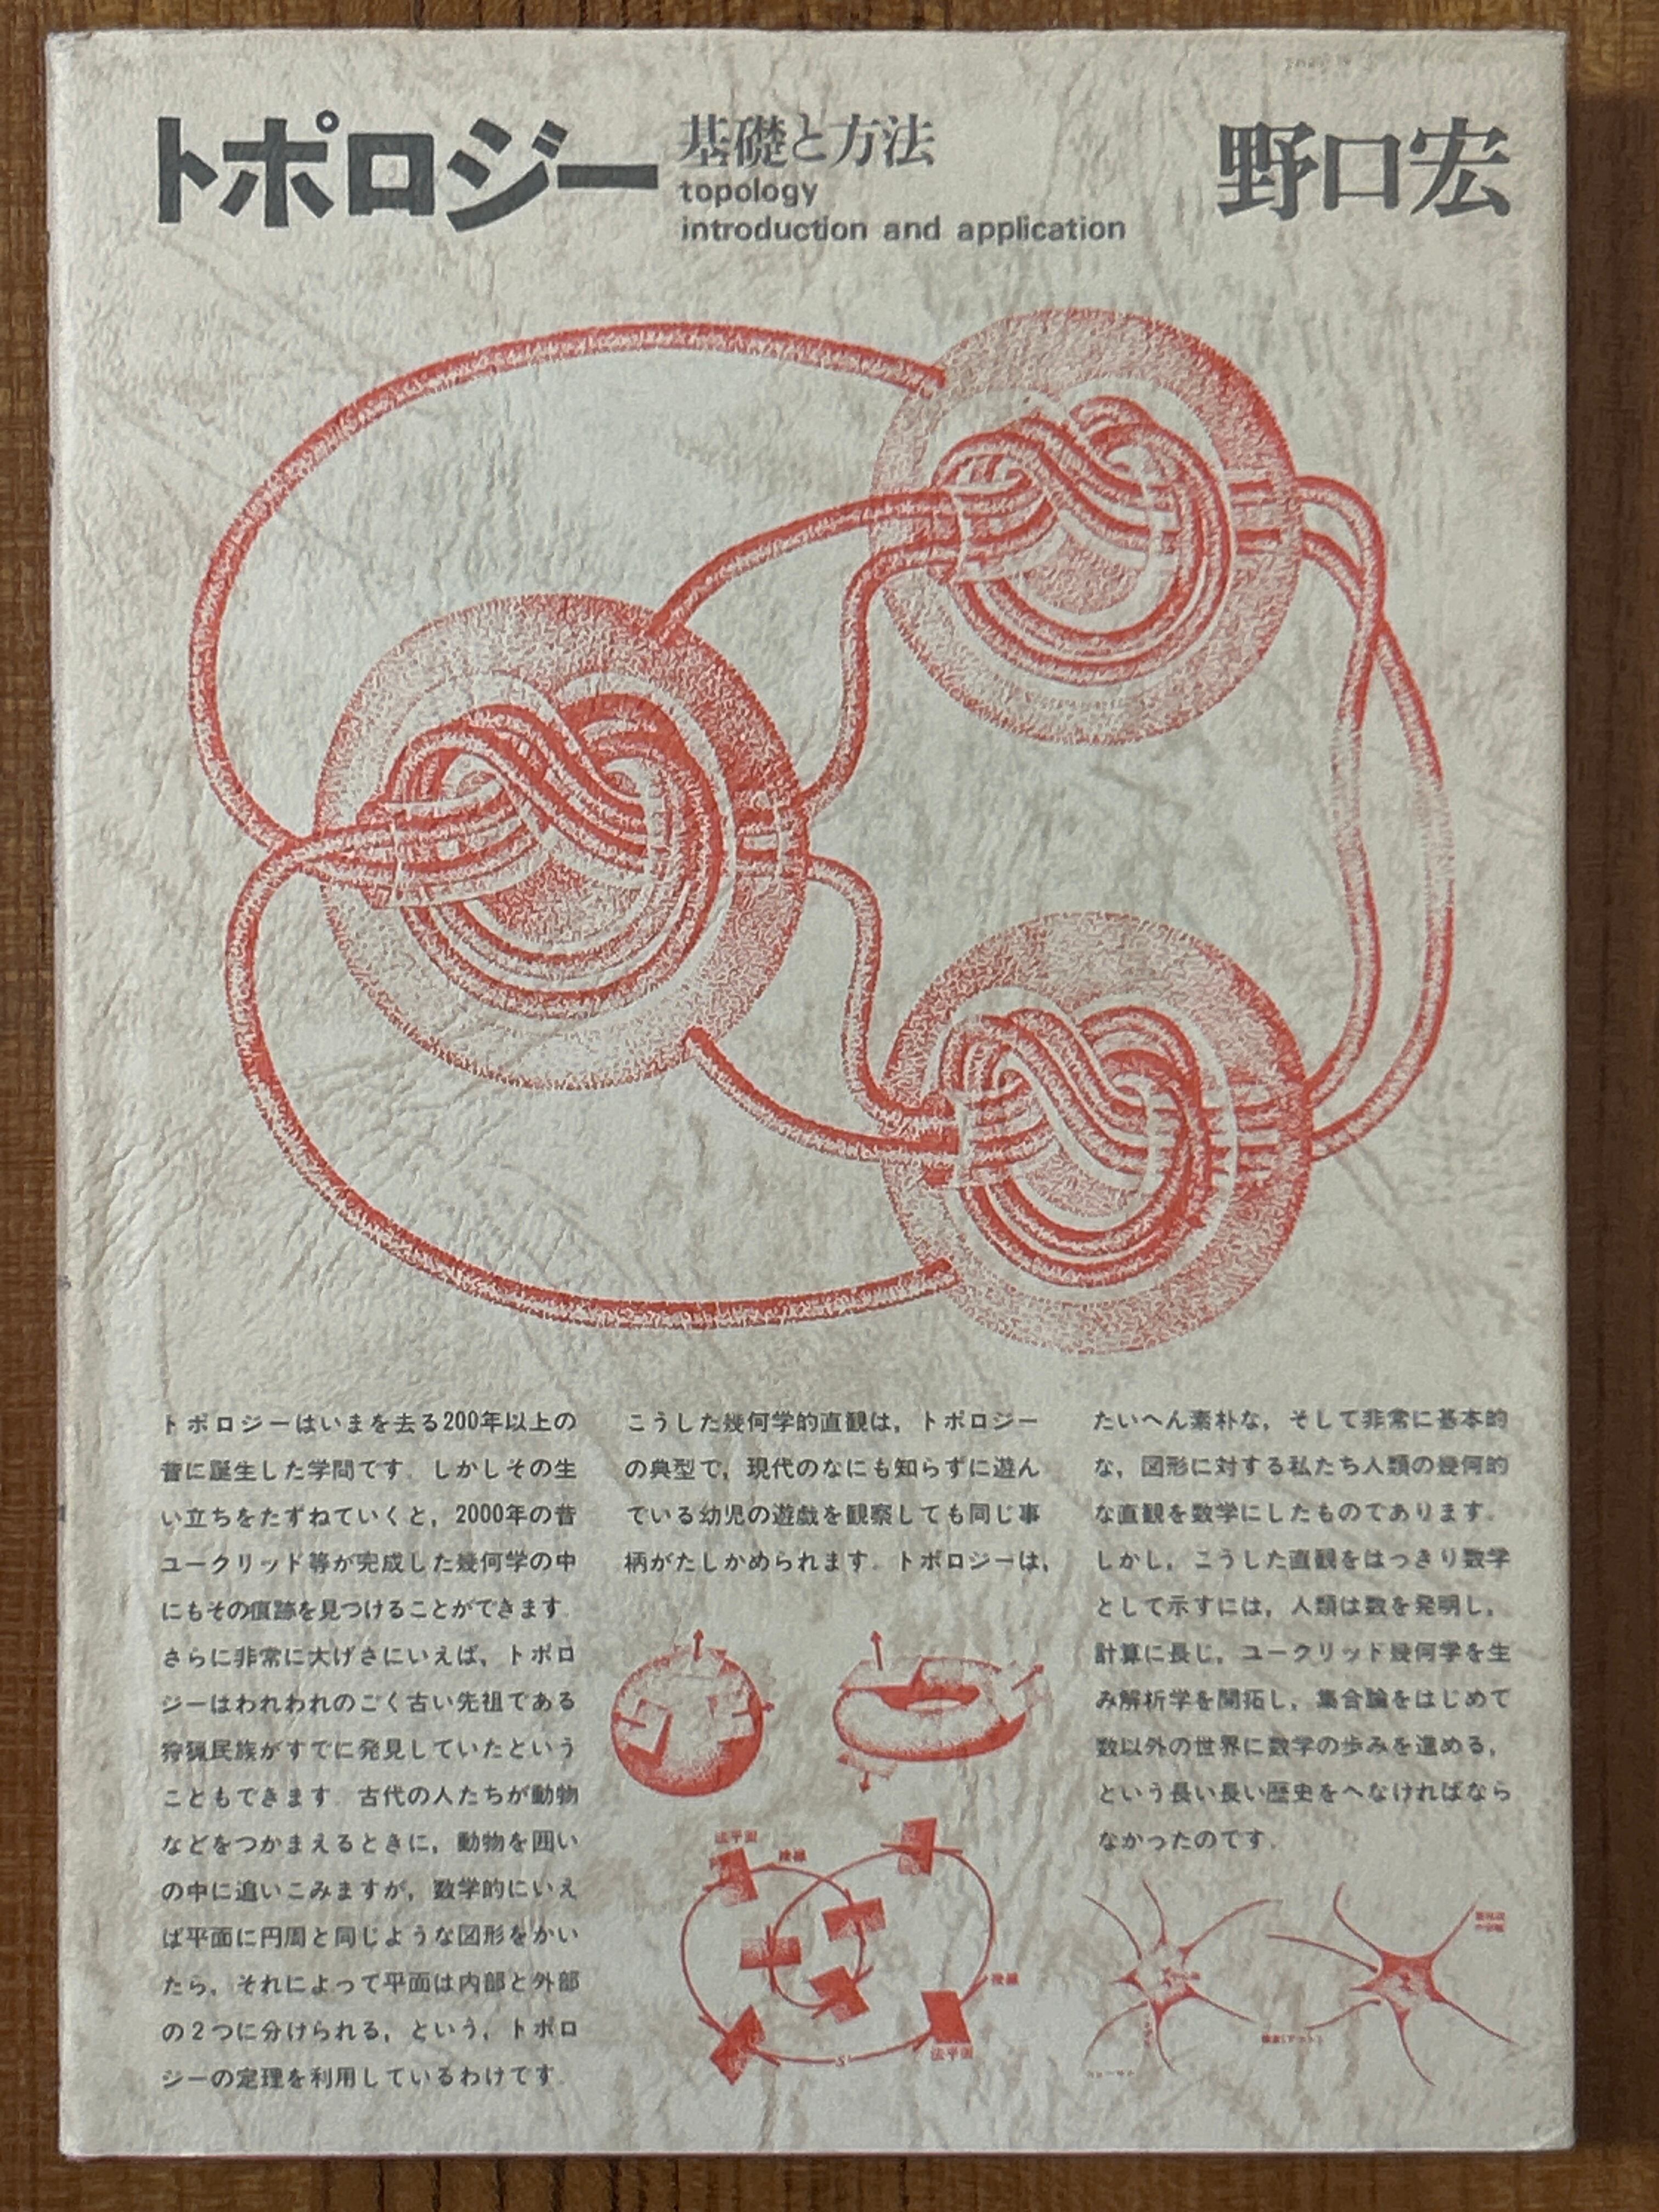 トポロジー
基礎と方法
topology
introduction and application
野口宏
トポロジーはいまを去る200年以上の
昔に誕生した学問です．しかしその生
い立ちをたずねていくと，2000年の昔
ユークリッド等が完成した幾何学の中
にもその痕跡を見つけることができます．
さらに非常に大げさにいえば，トポロ
ジーはわれわれのごく古い先祖である
狩猟民族がすでに発見していたという
こともできます．古代の人たちが動物
などをつかまえるときに，動物を囲い
の中に追いこみますが，数学的にいえ
ば平面に円周と同じような図形をかい
たら，それによって平面は内部と外部
の2つに分けられる，という，トポロ
ジーの定理を利用しているわけです．
こうした幾何学的直観は，トポロジー
の典型で，現代のなにも知らずに遊ん
でいる幼児の遊戯を観察しても同じ事
柄がたしかめられます．トポロジーは，
たいへん素朴な，そして非常に基本的
な，図形に対する私たち人類の幾何的
な直観を数学にしたものであります．
しかし，こうした直観をはっきり数学
として示すには，人類は数を発明し，
計算に長じ，ユークリッド幾何学を生
み解析学を開拓し，集合論をはじめて
数以外の世界に数学の歩みを進める，
という長い長い歴史をへなければなら
なかったのです．
法平面
接線
接線
法平面
S¹